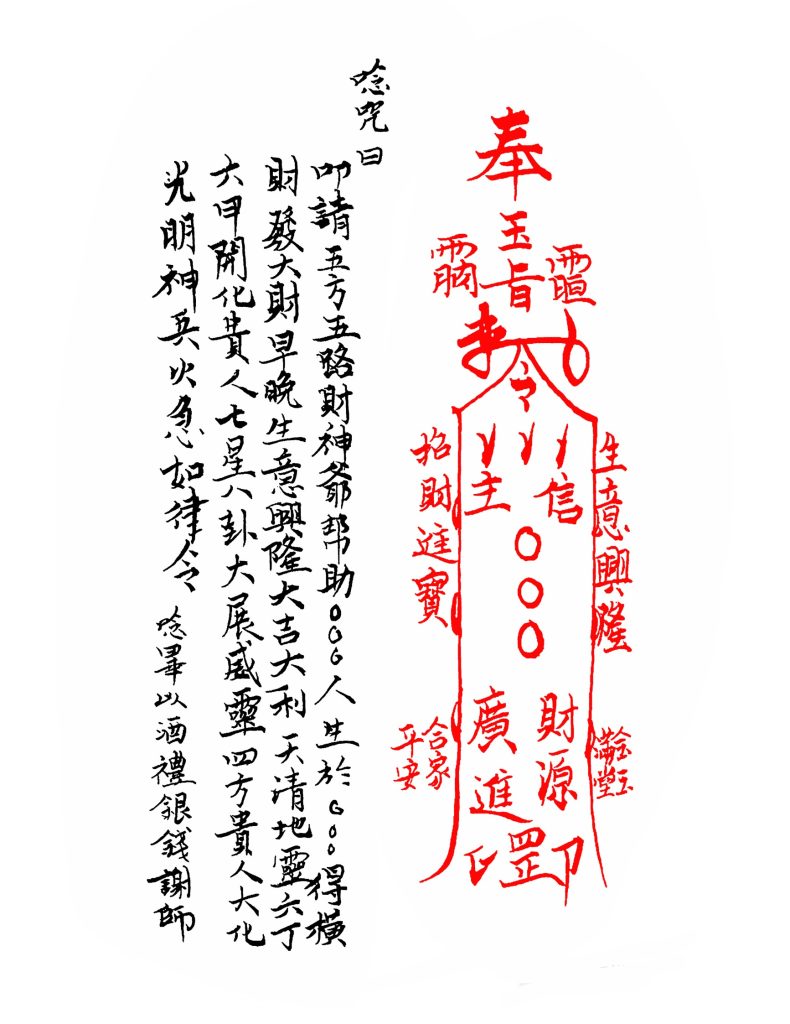 奉
玉旨
令
生意興隆
金玉滿堂
信
主
○○○
財源
廣進
罡
印
招財進寶
合家平安
唸咒曰
叩請五方五路財神爺幫助○○○人生於○○○得橫
財發大財早晚生意興隆大吉大利天清地靈六丁
六甲開化貴人七星八卦大展威靈四方貴人大化
光明神兵火急如律令 唸畢以酒禮銀錢謝師